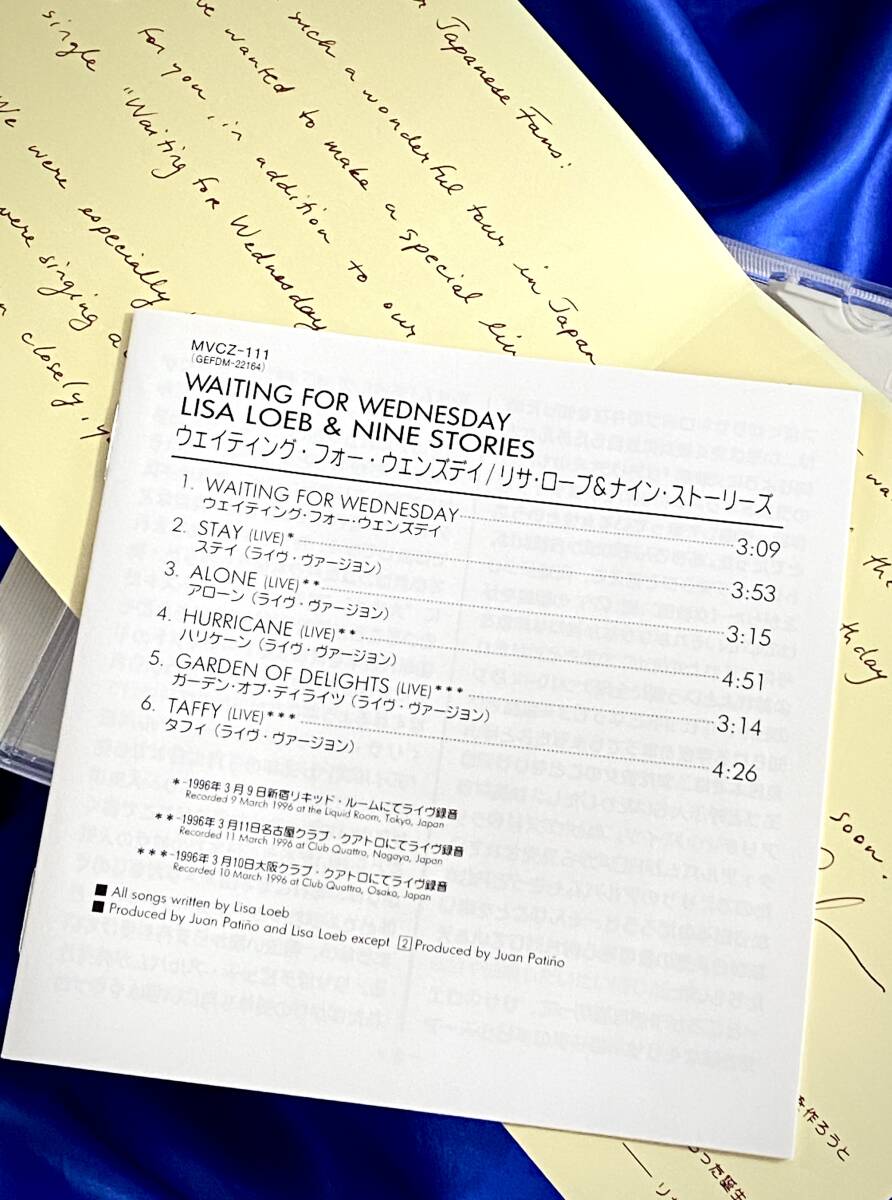 Japanese Fans:
such a wonderful tour in Japan
we wanted to make a special
for you, in addition to our
single "Waiting for Wednesday
We were especially
were singing
closely,
thday
soon.
MVCZ-111
(GEFDM-22164)
WAITING FOR WEDNESDAY
LISA LOEB & NINE STORIES
ウェイティング・フォー・ウェンズデイ/リサ・ローブ&ナイン・ストーリーズ
1. WAITING FOR WEDNESDAY 3:09
ウェイティング・フォー・ウェンズデイ
2. STAY (LIVE)* 3:53
ステイ(ライヴ・ヴァージョン)
3. ALONE (LIVE)** 3:15
アローン(ライヴ・ヴァージョン)
4. HURRICANE (LIVE)** 4:51
ハリケーン(ライヴ・ヴァージョン)
5. GARDEN OF DELIGHTS (LIVE)*** 3:14
ガーデン・オブ・ディライツ(ライヴ・ヴァージョン)
6. TAFFY (LIVE)*** 4:26
タフィ(ライヴ・ヴァージョン)
*-1996年3月9日新宿リキッド・ルームにてライヴ録音
Recorded 9 March 1996 at the Liquid Room, Tokyo, Japan
**-1996年3月11日名古屋クラブ・クアトロにてライヴ録音
Recorded 11 March 1996 at Club Quattro, Nagoya, Japan
***-1996年3月10日大阪クラブ・クアトロにてライヴ録音
Recorded 10 March 1996 at Club Quattro, Osaka, Japan
■ All songs written by Lisa Loeb
■ Produced by Juan Patiño and Lisa Loeb except 2 Produced by Juan Patiño
を作ろうと
った誕生